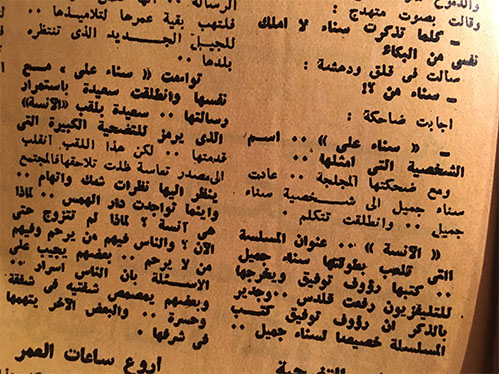 والدموع
وقالت بصوت متهدج :
ـ كلما تذكرت سناء لا املك
نفسى من البكاء
سالت فى قلق ودهشة :
ـ سناء من ؟!
اجابت ضاحكة :
ـ « سناء على » .. اسم
الشخصية التى امثلها ..
ومع ضحكتها المجلجلة .. عادت
سناء جميل الى شخصية سناء
جميل .. وانطلقت تتكلم .
« الآنسة » .. عنوان المسلسة
التى تلعب بطولتها سناء جميل
.. كتبها رؤوف توفيق ويخرجها
للتليفزيون رفعت قلدس .. وجدير
بالذكر ان رؤوف توفيق كتب
المسلسلة خصيصا لسناء جميل ..
الرسالة ..
فتلتهب بقية عمرها لتلاميذها ..
للجيل الجديد الذى تنتظره
بلدها ..
تواءمت « سناء على » مع
نفسها وانطلقت سعيدة باستمرار
رسالتها .. سعيدة بلقب «الآنسة»
الذى يرمز للتضحية الكبيرة التى
قدمتها .. لكن هذا اللقب انقلب
الى مصدر تعاسة ظلت تلاحقها فالمجتمع
ينظر اليها نظرات شك واتهام ..
واينما تواجدت دار الهمس .. لماذا
هى آنسة ؟ لماذا لم تتزوج حتى
الآن ؟ والناس فيهم من يرحم وفيهم
من لا يرحم .. بعضهم يجيب على
الاسئلة بان الناس اسرار ..
وبعضهم يمصمص شفتيه فى شفقة
وحسرة .. والبعض الآخر يتهمها
فى شرفها .
اروع ساعات العمر